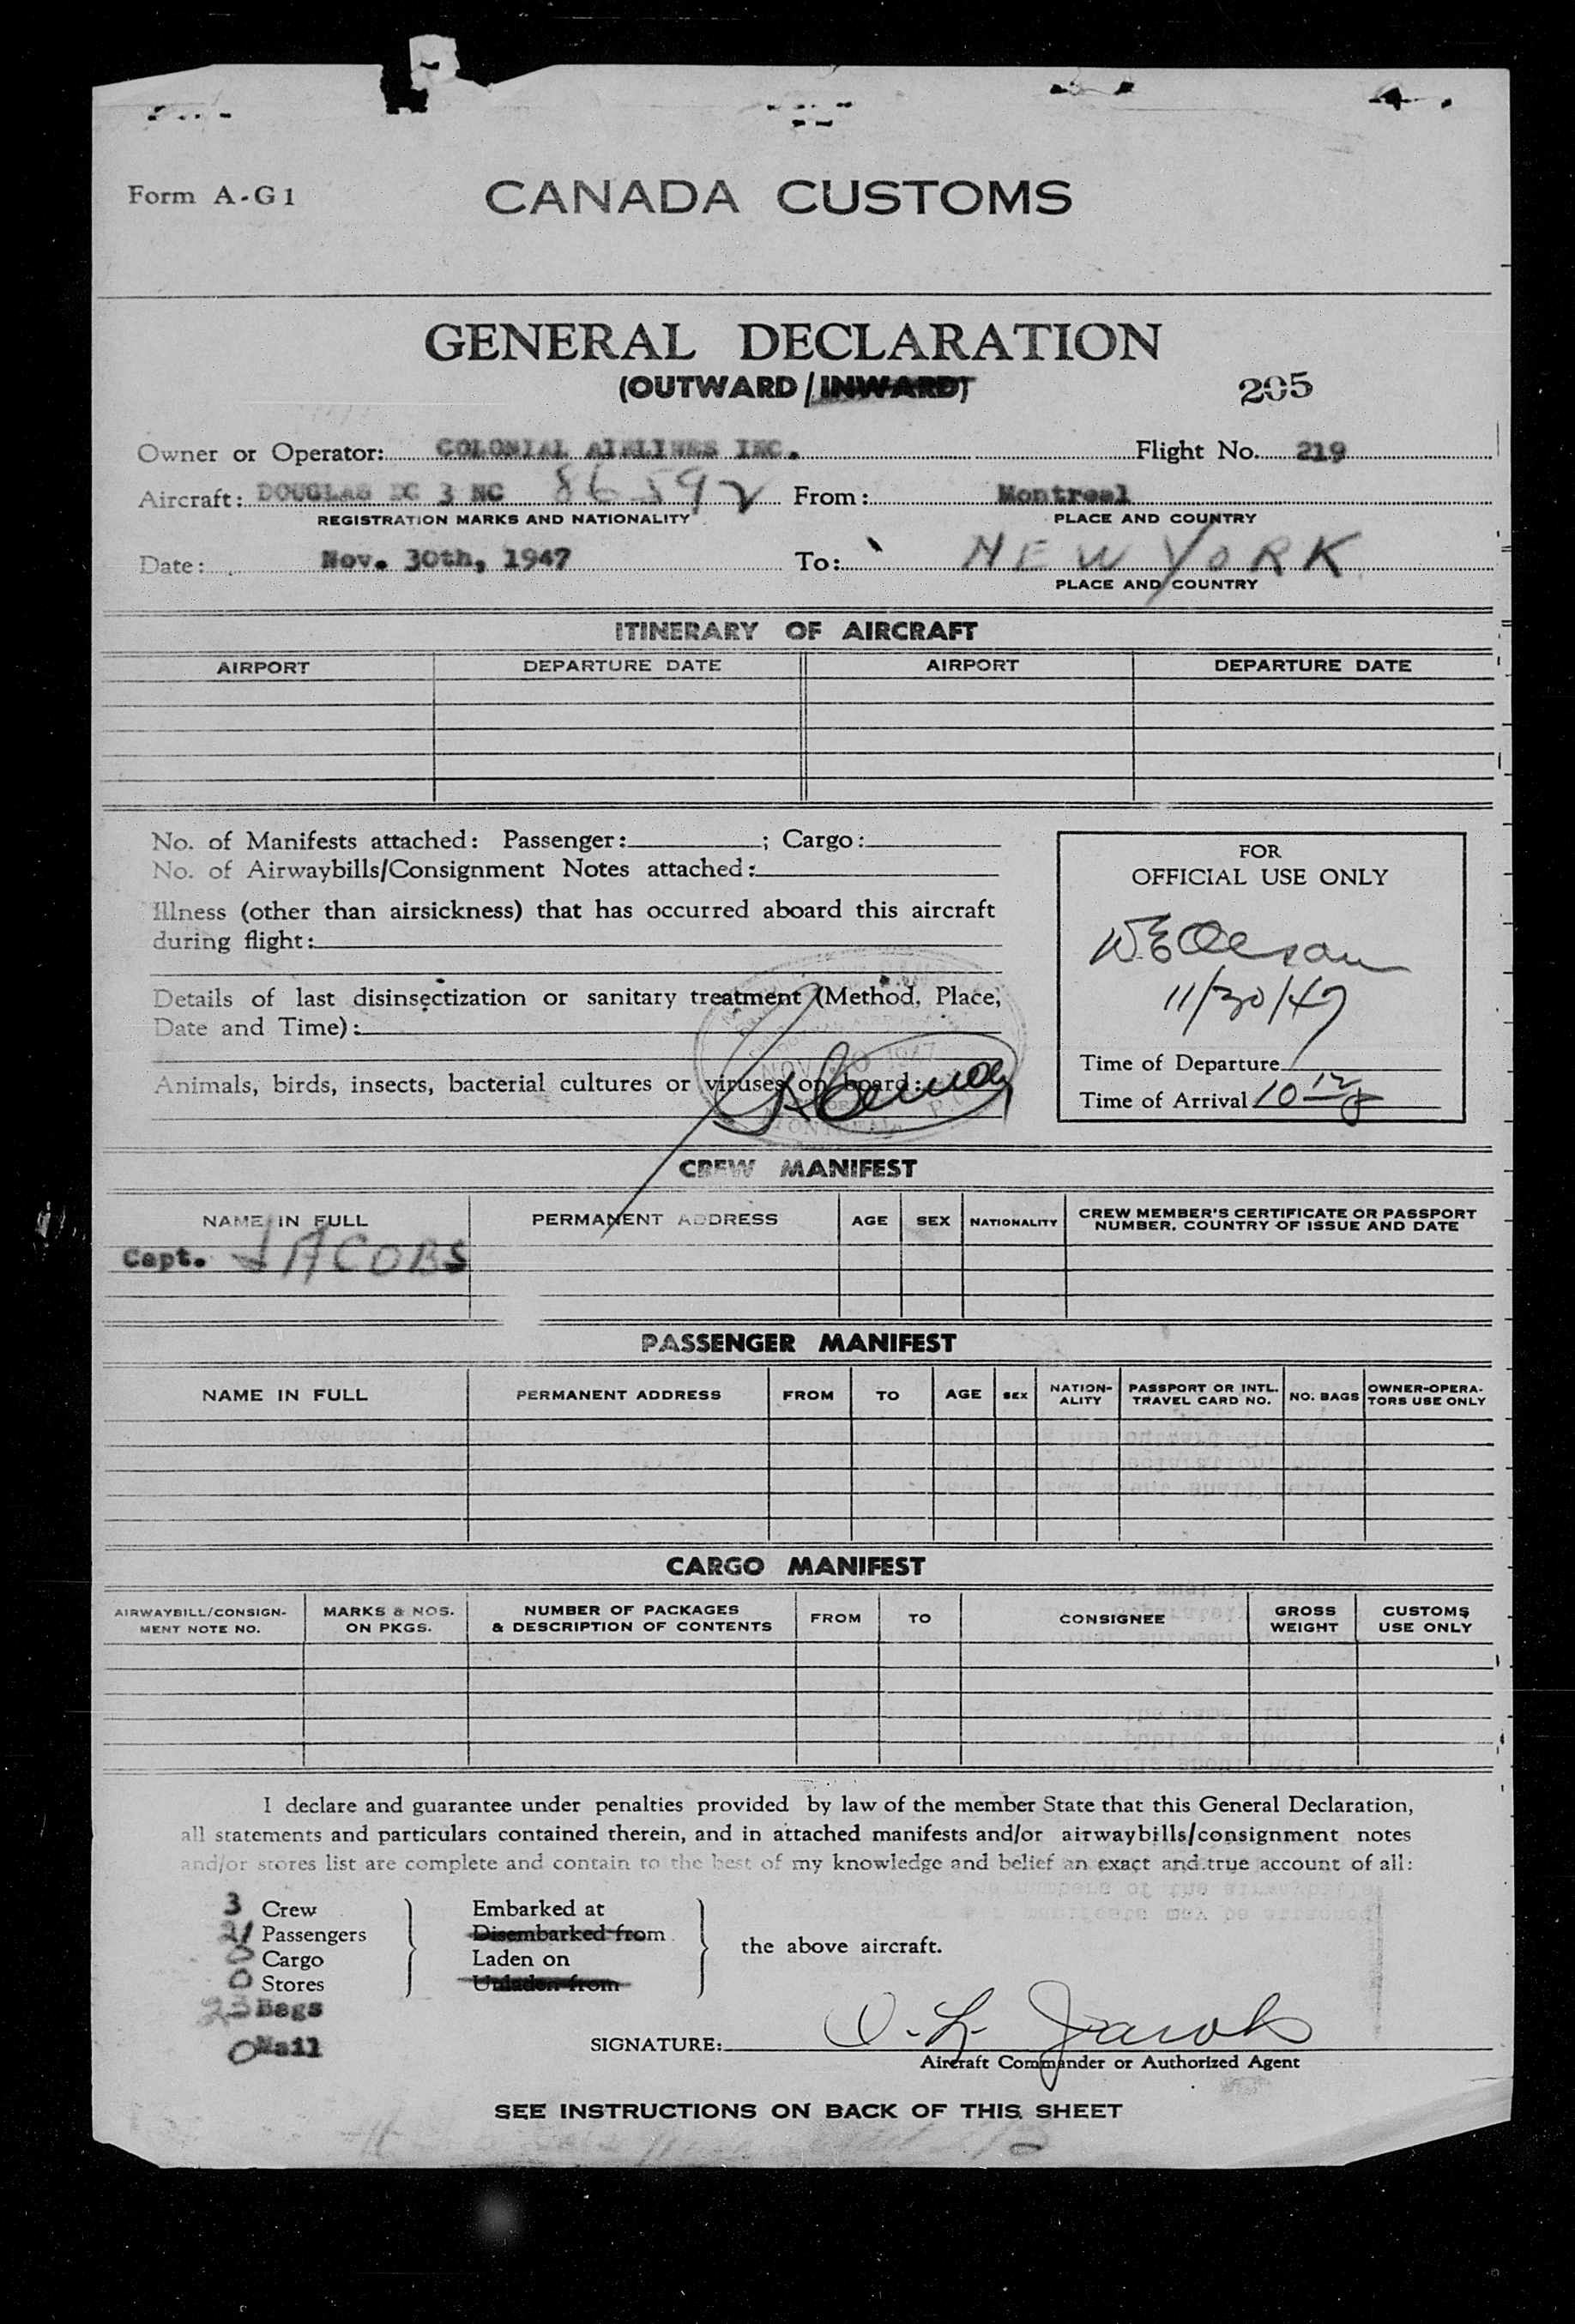 Form A-G1 CANADA CUSTOMS
GENERAL DECLARATION
(OUTWARD/INWARD)
205
Owner or Operator: COLONIAL AIRLINES INC. Flight No. 219
Aircraft: DOUGLAS DC 3 NC 86592 From: Montreal
REGISTRATION MARKS AND NATIONALITY PLACE AND COUNTRY
Date: Nov. 30th, 1947 To: NEW YORK
PLACE AND COUNTRY
ITINERARY OF AIRCRAFT
AIRPORT DEPARTURE DATE AIRPORT DEPARTURE DATE
No. of Manifests attached: Passenger: ; Cargo:
No. of Airwaybills/Consignment Notes attached:
Illness (other than airsickness) that has occurred aboard this aircraft
during flight:
Details of last disinsectization or sanitary treatment (Method, Place,
Date and Time):
Animals, birds, insects, bacterial cultures or viruses on board:
NOV 30 1947
MONTREAL
FOR
OFFICIAL USE ONLY
11/30/47
Time of Departure
Time of Arrival 10
CREW MANIFEST
NAME IN FULL PERMANENT ADDRESS AGE SEX NATIONALITY CREW MEMBER'S CERTIFICATE OR PASSPORT
NUMBER, COUNTRY OF ISSUE AND DATE
Capt. JACOBS
PASSENGER MANIFEST
NAME IN FULL PERMANENT ADDRESS FROM TO AGE SEX NATION-
ALITY PASSPORT OR INTL.
TRAVEL CARD NO. NO. BAGS OWNER-OPERA-
TORS USE ONLY
CARGO MANIFEST
AIRWAYBILL/CONSIGN-
MENT NOTE NO. MARKS & NOS.
ON PKGS. NUMBER OF PACKAGES
& DESCRIPTION OF CONTENTS FROM TO CONSIGNEE GROSS
WEIGHT CUSTOMS
USE ONLY
I declare and guarantee under penalties provided by law of the member State that this General Declaration,
all statements and particulars contained therein, and in attached manifests and/or airwaybills/consignment notes
and/or stores list are complete and contain to the best of my knowledge and belief an exact and true account of all:
3 Crew Embarked at
21 Passengers Disembarked from
the above aircraft.
0 Cargo Laden on
0 Stores Unladen from
23 Bags
0 Mail
SIGNATURE: O. L. Jacobs
Aircraft Commander or Authorized Agent
SEE INSTRUCTIONS ON BACK OF THIS SHEET